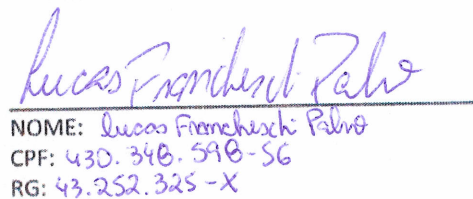 Lucas Francheschi Palvo
NOME: Lucas Francheschi Palvo
CPF: 430.348.598-56
RG: 43.252.325-X